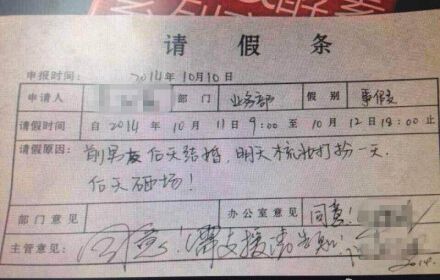 请假条
申报时间: 2014年10月10日
申请人 部门 业务部 假别 事假
请假时间: 自2014年10月11日9:00至10月12日18:00止
请假原因: 前男友后天结婚,明天梳妆打扮一天.
后天砸场!
部门意见 办公室意见 同意!
主管意见: 同意!需支援请告知!
2014.